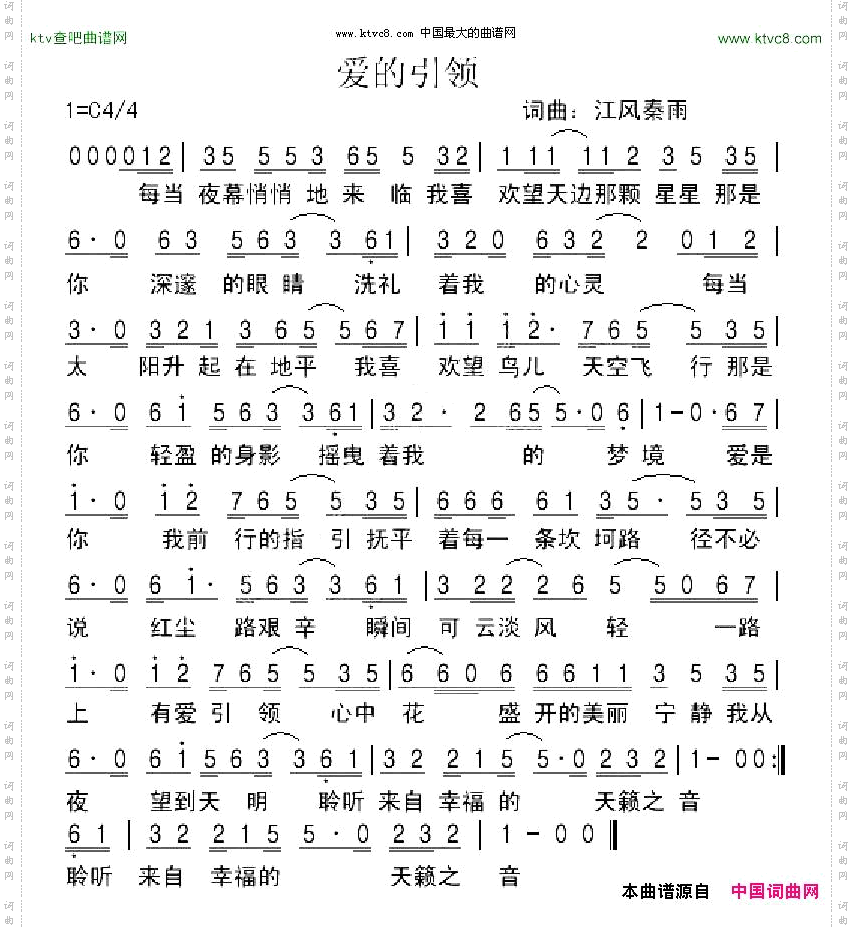 www.ktvc8.com 中国最大的曲谱网
ktv查吧曲谱网
www.ktvc8.com
爱的引领
1=C4/4
词曲：江风秦雨
000012 | 35 553 65 5 32 | 1 11 112 3 5 35 |
每当 夜幕悄悄 地来 临 我喜 欢望天边那颗 星星 那是
6· 0 63 563 3 61 | 320 632 2 012 |
你 深邃 的眼 睛 洗礼 着我 的心灵 每当
3· 0 321 365 567 | 11 12· 765 535 |
太 阳升 起 在 地平 我喜 欢望 鸟儿 天空飞 行 那是
6· 0 61 563 361 | 32· 2 65 5·06 | 1-0·67 |
你 轻盈 的身影 摇曳 着我 的 梦 境 爱是
1· 0 12 765 535 | 666 61 35· 535 |
你 我前 行的指 引 抚平 着每一 条坎 坷路 径不必
6· 0 61· 563 3 61 | 3 22 26 5 5067 |
说 红尘 路艰 辛 瞬间 可 云淡 风 轻 一路
1· 0 12 765 535 | 6 606 6611 3 535 |
上 有爱 引 领 心中 花 盛 开的美丽 宁 静 我从
6· 0 61 563 361 | 32 215 5·0232 | 1-00:||
夜 望到天 明 聆听 来自 幸福 的 天籁之 音
61 | 32 215 5· 0 232 | 1-00 ||
聆听 来自 幸福的 天籁之 音
本曲谱源自 中国词曲网
词曲网